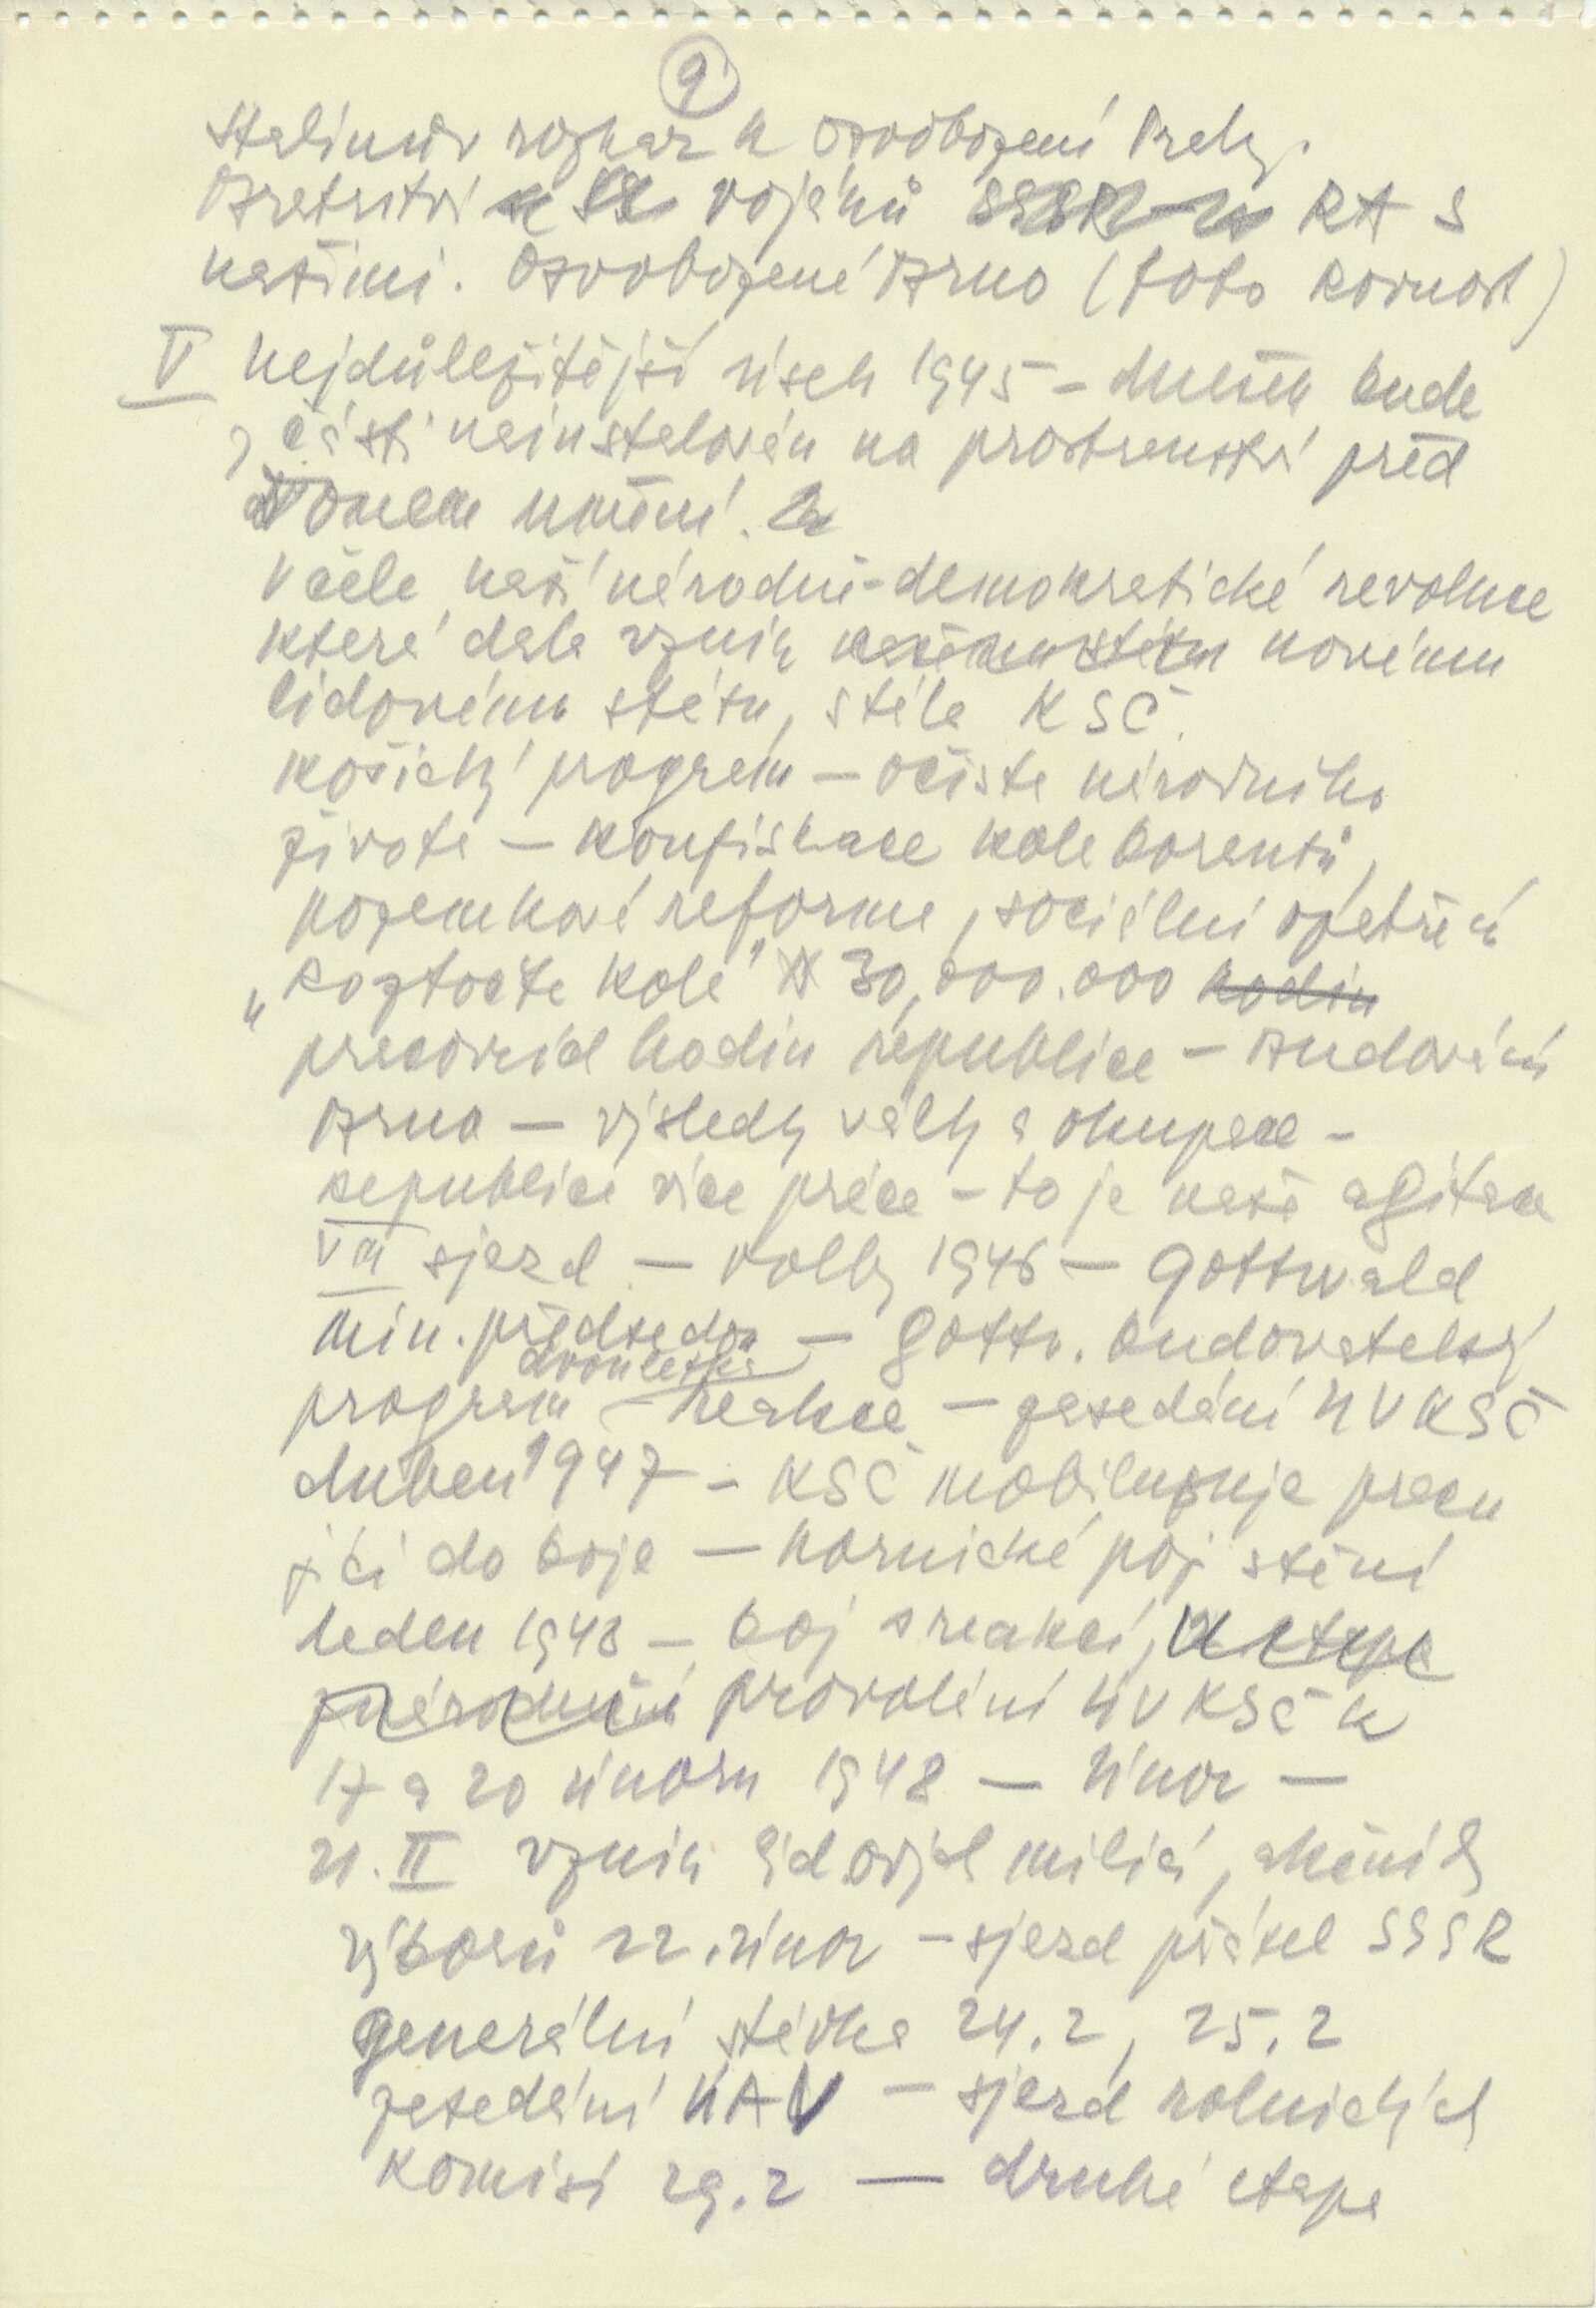 9
Stalinův rozkaz k osvobození Prahy.
Bratrství vojáků RA s
našimi. Osvobozené Brno (foto Rovnost)
V nejdůležitější úsek 1945 – dnešek bude
z části nainstalován na prostranství před
Domem umění.
V čele naší národně-demokratické revoluce
která dala vznik našemu státu novému
lidovému státu, stála KSČ.
Košický program – očista národního
života – konfiskace kolaborantů,
pozemková reforma, sociální opatření
„Roztočte kola" 30,000.000 hodin
pracovních hodin republice – Budování
Brna – výsledky války a okupace –
Republice více práce – to je naše agitace
VIII sjezd – volby 1946 – Gottwald
min. předseda – Gottw. budovatelský
dvouletka
program – reakce – zasedání ÚV KSČ
duben 1947 – KSČ mobilisuje pracu
jící do boje – hornické pojištění
leden 1948 – boj s reakcí, II etapa
znárodnění provolání ÚV KSČ k
17 a 20 únoru 1948 – Únor –
21. II vznik lidových milicí, akčních
výborů 22. únor – sjezd přátel SSSR
generální stávka 24.2, 25.2
zasedání ÚAV – sjezd rolnických
komisí 29.2 – druhá etapa